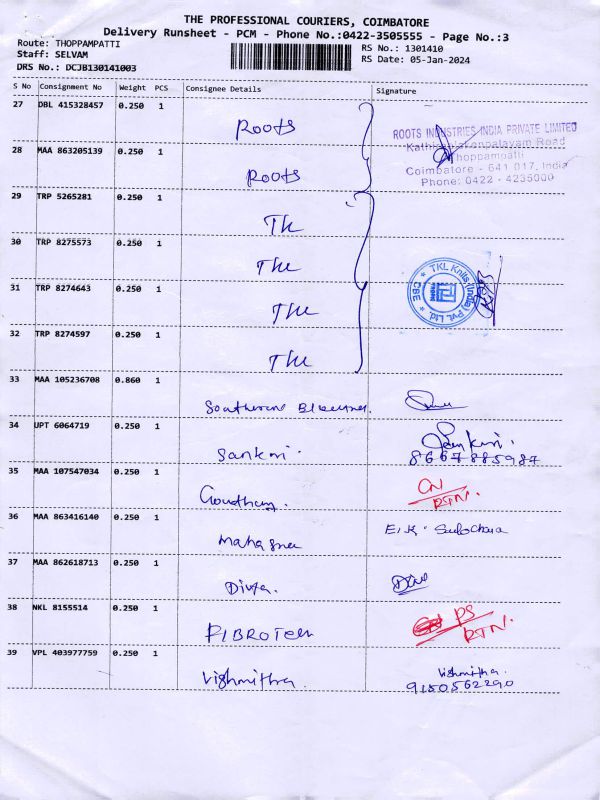 THE PROFESSIONAL COURIERS, COIMBATORE
Delivery Runsheet - PCM - Phone No.:0422-3505555 - Page No.:3
Route: THOPPAMPATTI RS No.: 1301410
Staff: SELVAM RS Date: 05-Jan-2024
DRS No.: DCJB130141003
S No Consignment No Weight PCS Consignee Details Signature
27 DBL 415328457 0.250 1
Roots
ROOTS INDUSTRIES INDIA PRIVATE LIMITED
28 MAA 863205139 0.250 1
Thoppampatti
Roots
Coimbatore - 641 017, India
Phone: 0422 - 4235000
29 TRP 5265281 0.250 1
30 TRP 8275573 0.250 1
TKL Knits (India) Pvt. Ltd.
CBE
31 TRP 8274643 0.250 1
32 TRP 8274597 0.250 1
33 MAA 105236708 0.860 1
34 UPT 6064719 0.250 1
Sankari. Sankari.
8667885987
35 MAA 107547034 0.250 1
CN
RTN.
36 MAA 863416140 0.250 1
37 MAA 862618713 0.250 1
Divya.
38 NKL 8155514 0.250 1
FIBROTech PS
RTN.
39 VPL 403977759 0.250 1
Vishmitha. Vishmitha.
9150562290